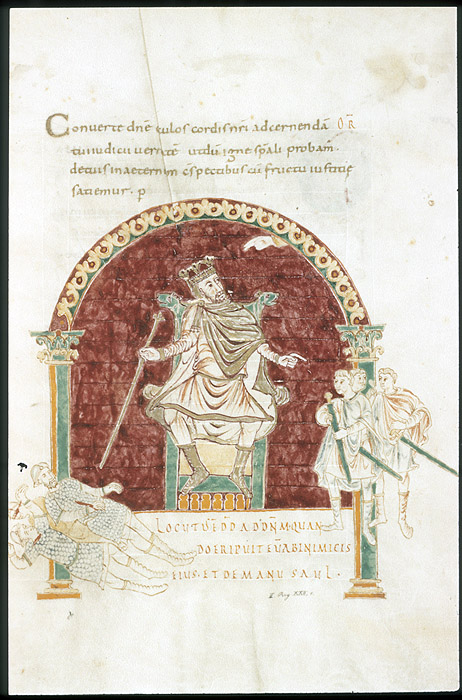 Conuerte dñe oculos cordis nr̄i ad cernendā OR̄
tui iudicii ueritatē ut dū igne sp̄ali probam̄.
de tuis in aeternum c̄spectibus cū fructu iustitie
satiemur. p
LOCUTUS Ē D̄O DAD D̄NM QUAN
DO ERIPUIT EŪ AB INIMICIS
EIUS. ET DE MANU SAUL.